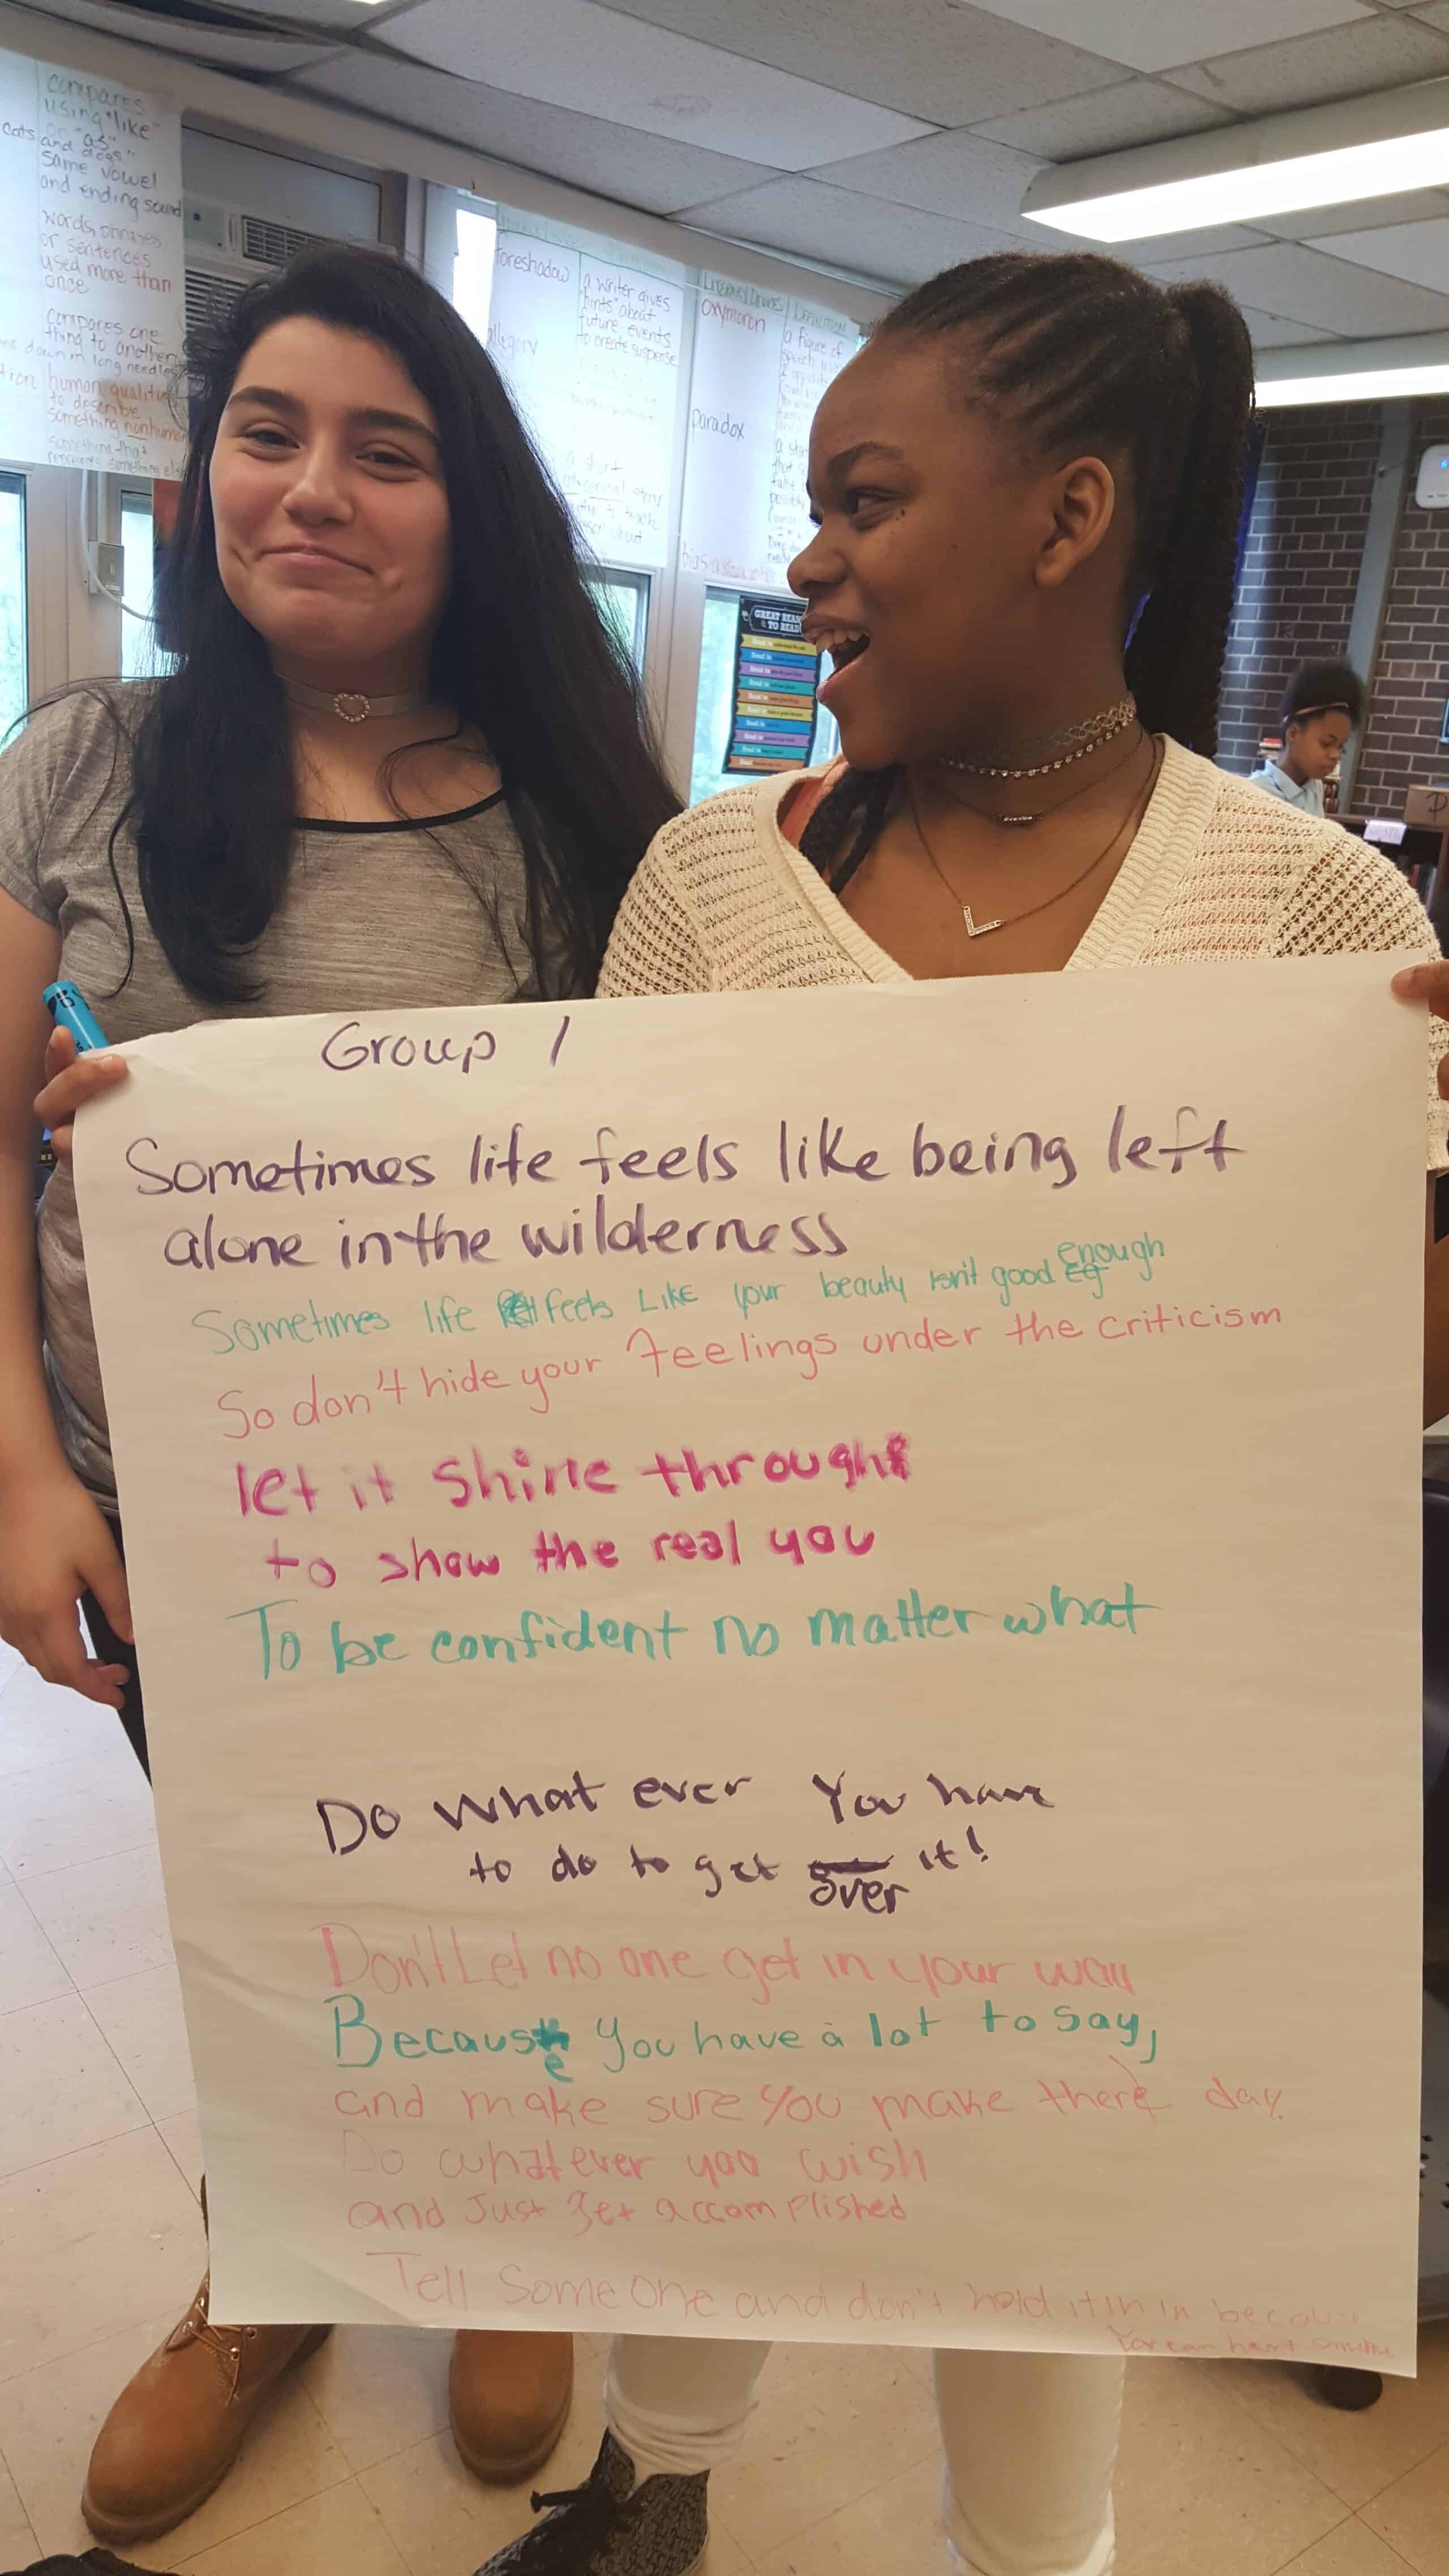 compares
using "like"
or "as"
cats and dogs"
same vowel
and ending sound
words, phrases
or sentences
used more than
once
compares one
thing to another
down in long needles
human qualities
to describe
something nonhuman
something that
represents something else
foreshadow
a writer gives
"hints" about
future events
to create suspense
allegory
a short
story
LITERARY DEVICES
DEFINITION
oxymoron
a figure of
speech
paradox
bias
GREAT REASONS
TO READ
Group 1
Sometimes life feels like being left
alone in the wilderness
Sometimes life feels Like your beauty isn't good enough
So don't hide your feelings under the criticism
let it shine through
to show the real you
To be confident no matter what
Do what ever You have
to do to get over it!
Don't Let no one get in your way
Because you have a lot to say,
and make sure you make there day.
Do whatever you wish
and Just get accomplished
Tell Some One and don't hold it in in because
You can hurt